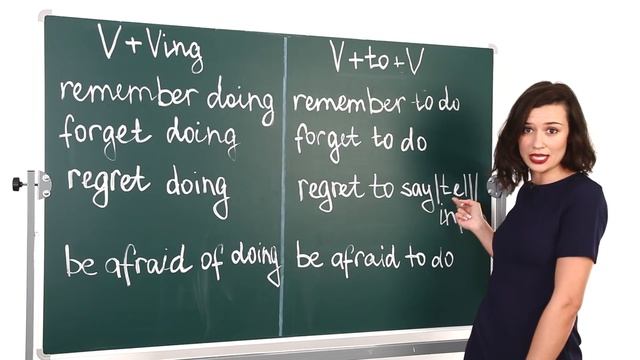 V+Ving
remember doing
forget doing
regret doing
be afraid of doing
V+to+V
remember to do
forget to do
regret to say/tell/
be afraid to do